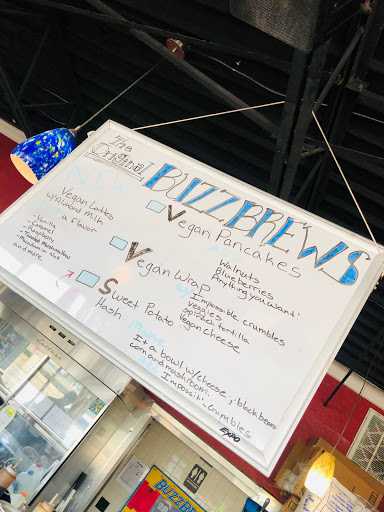 The
Original
BUZZBREWS
New!
Vegan Lattes
w/Almond Milk
a flavor
- Vanilla
- Caramel
- Raspberry
- Toasted Marshmallow
- Macadamia Nut
and more
Vegan Pancakes
Walnuts
Blueberries
Anything you want!
Vegan Wrap
w/ Impossible crumbles
veggies
spinach tortilla
vegan cheese
Sweet Potato
Hash
Make
It a bowl w/cheese, black beans
corn and mushroom.
Impossible Crumbles
EXPO
BUZZBREWS